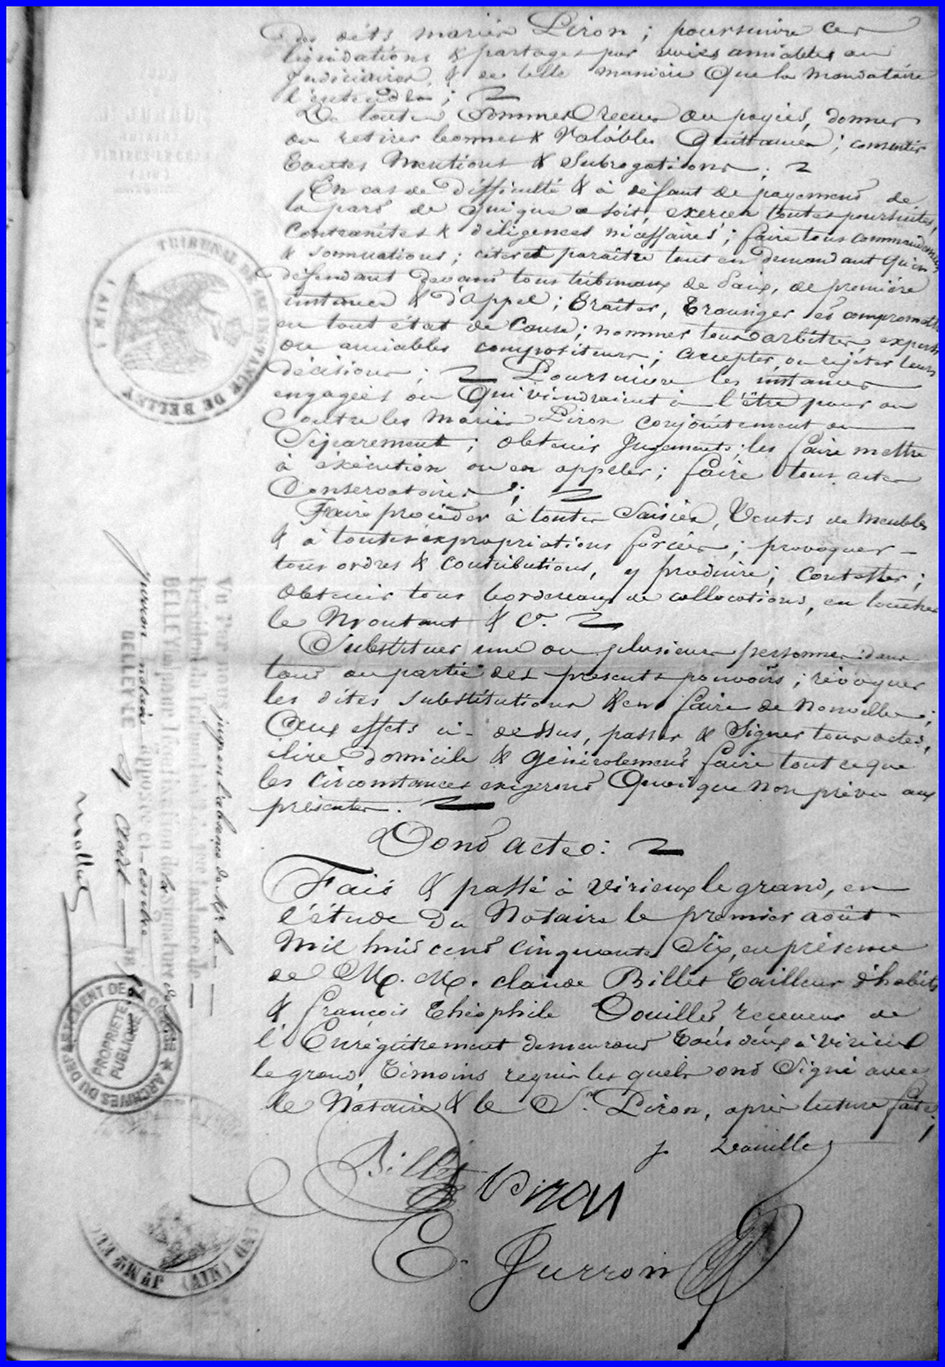 des dits mariés Piron ; poursuivre ces
liquidations & partages par voies amiables ou
Judiciaires & de telle manière Que la mandataire
l'entendra ;
De toutes Sommes recues ou payées, donner
ou retirer bonnes & Valables Quittances ; consentir
toutes Mentions & Subrogations ;
En cas de difficulté & à défaut de payement de
la part de qui que ce soit, exercer toutes poursuites,
Contraintes & diligences nécessaires ; faire tous commandemens
& sommations ; citer et paraître tout en demandant qu'en
défendant devant tous tribunaux de Paix, de première
instance & d'appel ; traiter, transiger et compromettre
en tout état de Cause ; nommer tous arbitres, experts
ou amiables compositeurs ; accepter ou rejeter leurs
décisions ; Poursuivre les instances
engagées ou Qui viendraient à l'être pour ou
Contre les Mariés Piron conjointement ou
Séparement ; obtenir Jugements ; les faire mettre
à éxécution ou en appeler ; faire tous actes
Conservatoires ;
Faire procéder à toutes Saisies, Ventes de Meubles
& à toutes expropriations forcées ; provoquer
tous ordres & contributions, y produire ; contester ;
Obtenir tous bordereaux de collocations, en toucher
le Montant & Ca.
Substituer une ou plusieurs personnes dans
tout ou partie des présents pouvoirs ; révoquer
les dites substitutions & en faire de nouvelles ;
Aux effets ci-dessus, passer & Signer tous actes,
élire domicile & Généralement faire tout ce que
les circonstances exigeront Quoique non prévu aux
présentes.
Dont acte :
Fait & passé à Virieux le grand, en
l'étude Du Notaire le premier août
Mil huit cent cinquante Six, en présence
de M. M. claude Billet tailleur d'habits
& françois théophile Douillet receveur de
l'Enrégistrement demeurant tous deux à Virieux
le grand, témoins requis les quels ont Signé avec
le Notaire & le Sr. Piron, après lecture faite ;
Billet
f Douillet
Piron
E. Jurron
TRIBUNAL DE 1re INSTANCE DE BELLEY
(AIN)
Vu Par nous juge en l'absence de Mr. le
Président du Tribunal de 1re Instance de
BELLEY pour Légalisation de la Signature de
Jurron notaire apposée ci-contre
BELLEY LE 4 août 18
Mollet
ARCHIVES DU DEPARTEMENT DE LA CORSE
PROPRIETE PUBLIQUE
(AIN)